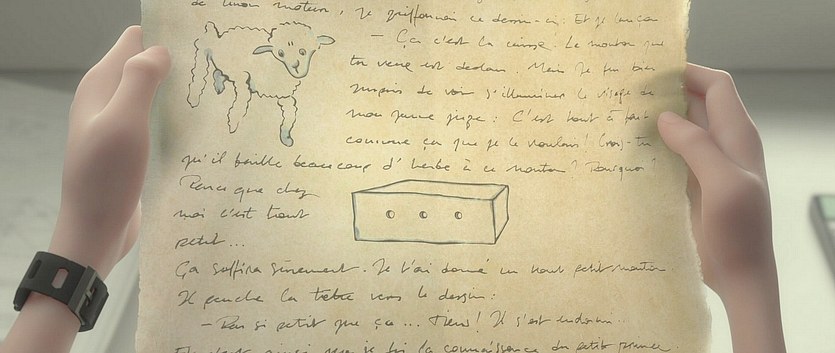 de mon moteur, je griffonnai ce dessin-ci. Et je lançai
– Ça c'est la caisse. Le mouton que
tu veux est dedans. Mais je fus bien
surpris de voir s'illuminer le visage de
mon jeune juge : C'est tout à fait
comme ça que je le voulais! Crois-tu
qu'il faille beaucoup d'herbe à ce mouton? Pourquoi?
Parce que chez
moi c'est tout
petit...
Ça suffira sûrement. Je t'ai donné un tout petit mouton
Il pencha la tête vers le dessin :
– Pas si petit que ça... Tiens! Il s'est endormi...
Et c'est ainsi que je fis la connaissance du petit prince.